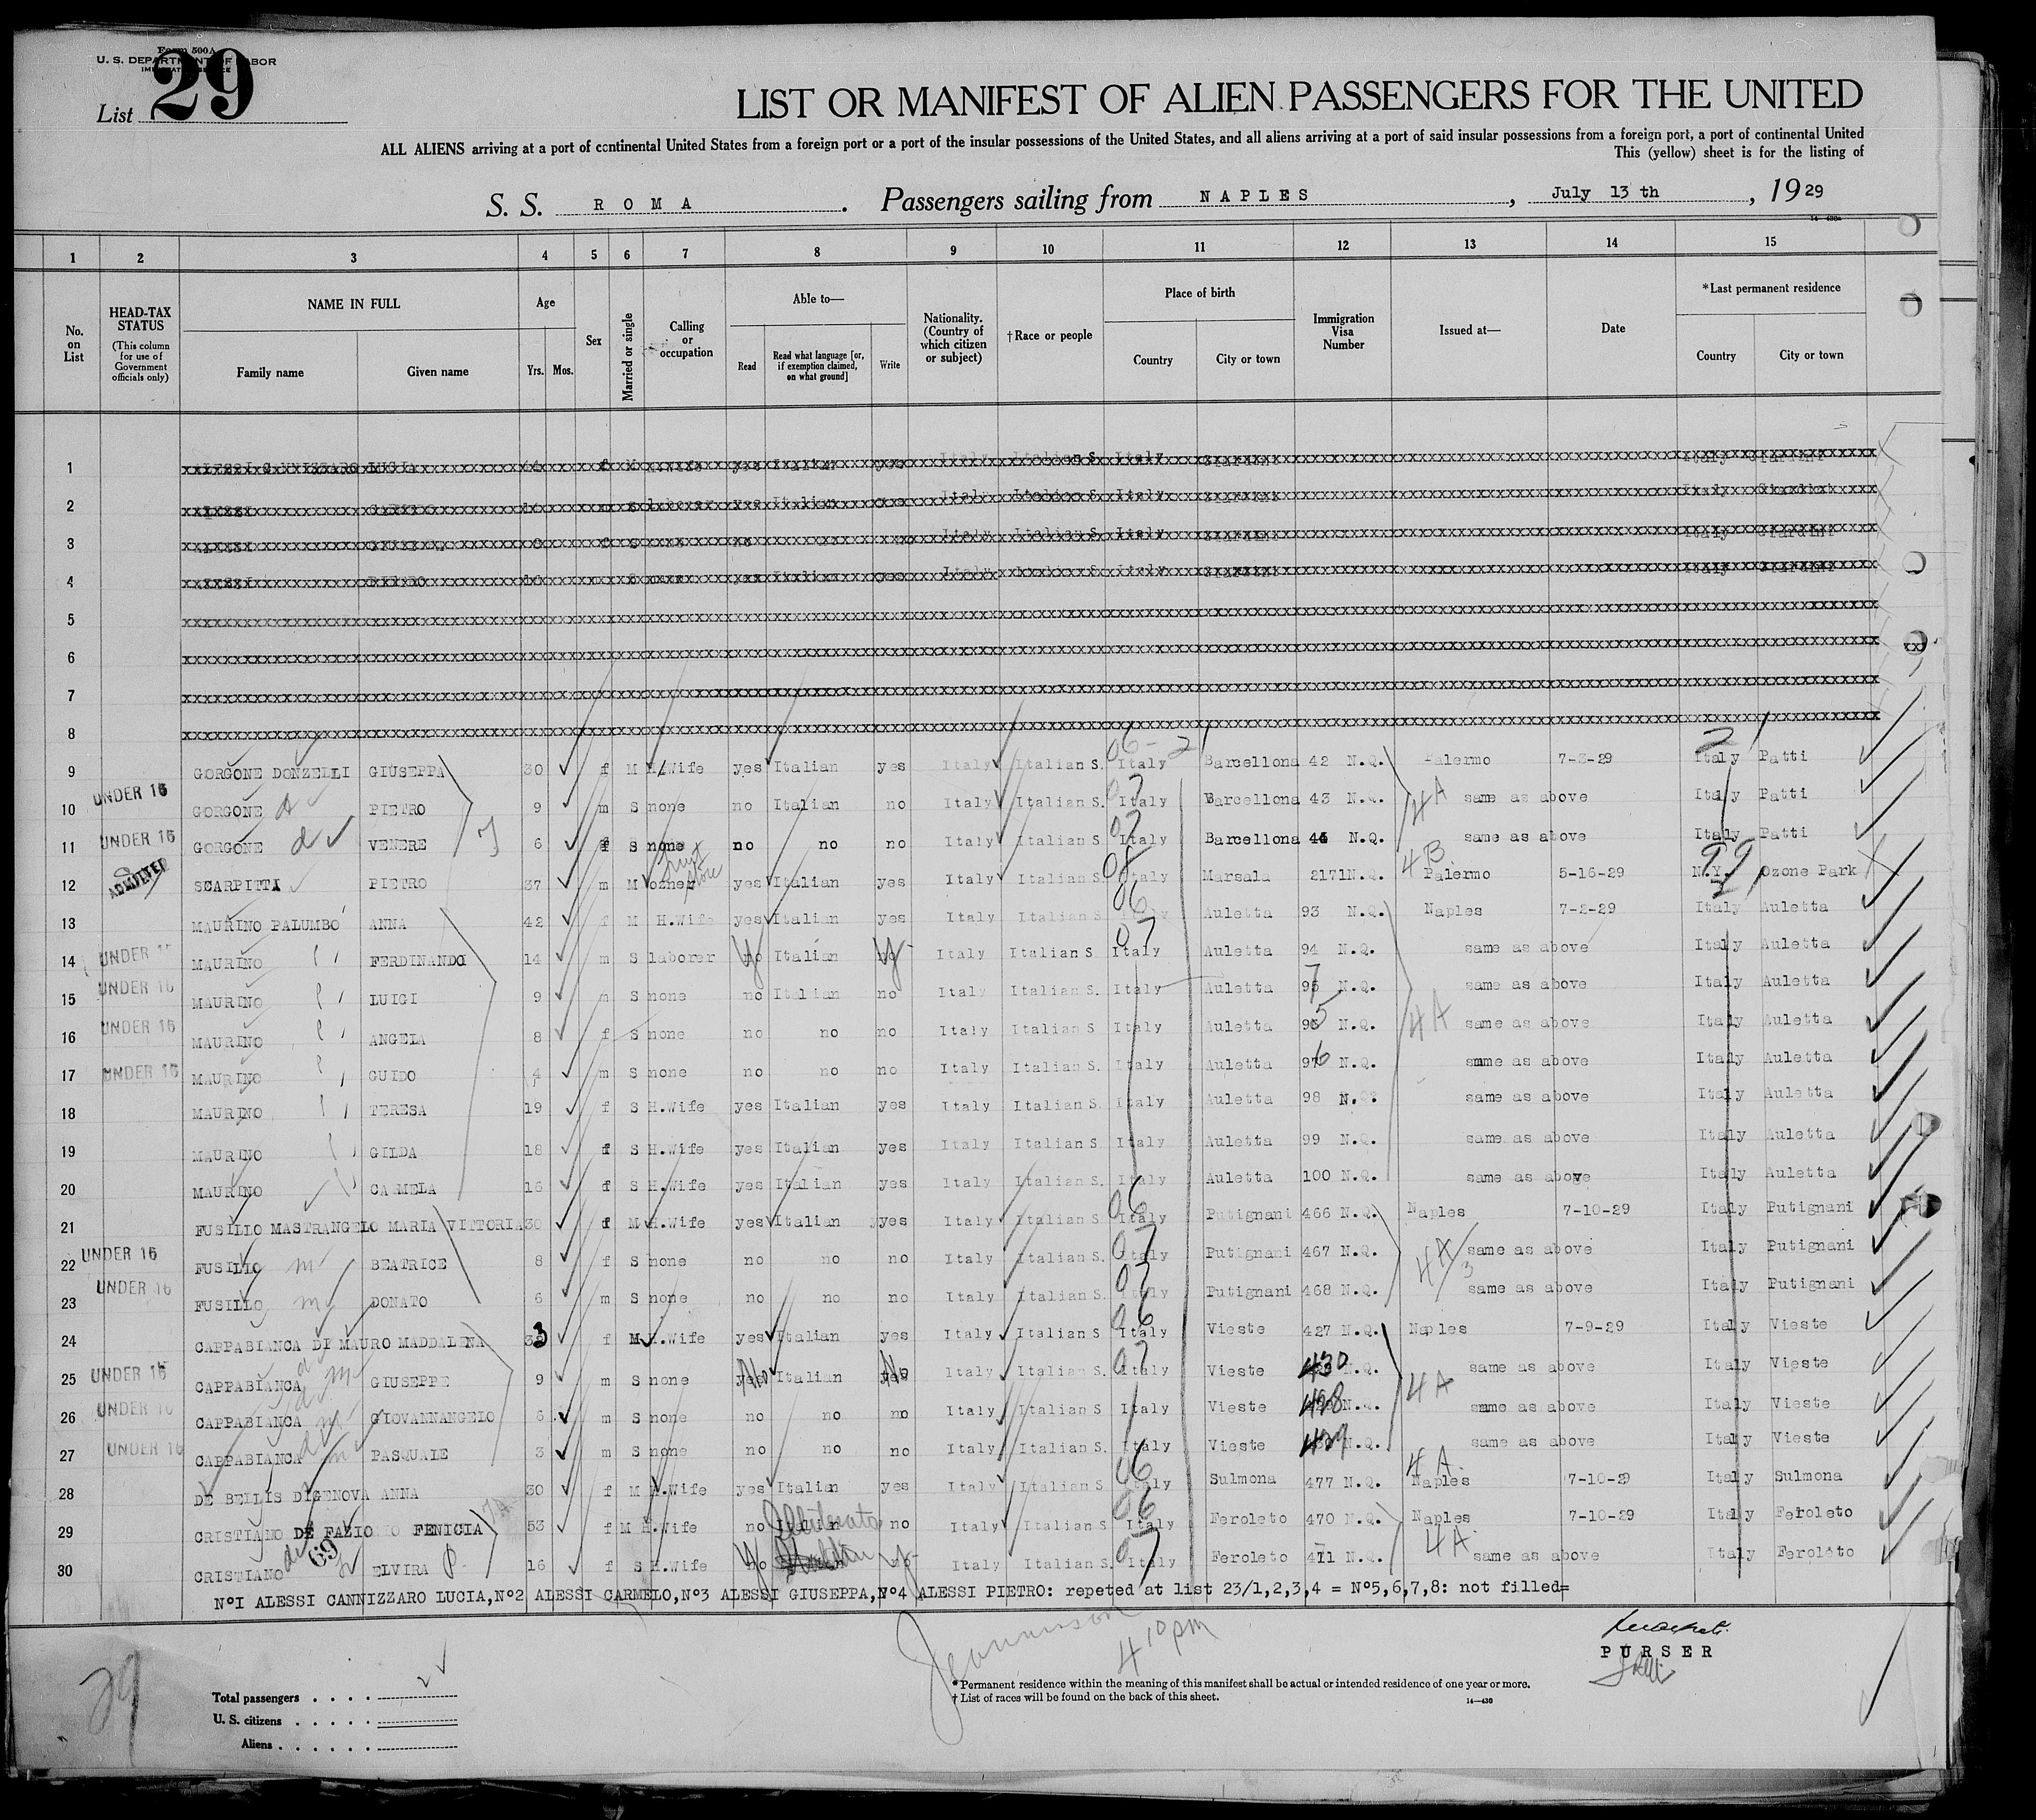 Form 500A
U. S. DEPARTMENT OF LABOR
List 29
LIST OR MANIFEST OF ALIEN PASSENGERS FOR THE UNITED
ALL ALIENS arriving at a port of continental United States from a foreign port or a port of the insular possessions of the United States, and all aliens arriving at a port of said insular possessions from a foreign port, a port of continental United
This (yellow) sheet is for the listing of
S. S. ROMA. Passengers sailing from NAPLES, July 13 th, 1929
1 2 3 4 5 6 7 8 9 10 11 12 13 14 15
No. on List
HEAD-TAX STATUS (This column for use of Government officials only)
NAME IN FULL Family name Given name
Age Yrs. Mos.
Sex
Married or single
Calling or occupation
Able to— Read Read what language [or, if exemption claimed, on what ground] Write
Nationality. (Country of which citizen or subject)
†Race or people
Place of birth Country City or town
Immigration Visa Number
Issued at—
Date
*Last permanent residence Country City or town
1
2
3
4
5
6
7
8
9 GORGONE DONZELLI GIUSEPPA 30 f M H/Wife yes Italian yes Italy Italian S. Italy Barcellona 42 N.Q. Palermo 7-3-29 Italy Patti
10 UNDER 16 GORGONE PIETRO 9 m S none no Italian no Italy Italian S. Italy Barcellona 43 N.Q. same as above Italy Patti
11 UNDER 16 GORGONE VENERE 6 f S none no no no Italy Italian S. Italy Barcellona N.Q. same as above Italy Patti
12 ADMITTED SCARPITTA PIETRO 37 m M owner fruit store yes Italian yes Italy Italian S. Italy Marsala 2171N.Q. 4B Palermo 5-16-29 N.Y. Ozone Park
13 MAURINO PALUMBO ANNA 42 f M H.Wife yes Italian yes Italy Italian S. Italy Auletta 93 N.Q. Naples 7-2-29 Italy Auletta
14 UNDER 16 MAURINO FERDINANDO 14 m S laborer Italian Italy Italian S Italy Auletta 94 N.Q. same as above Italy Auletta
15 UNDER 16 MAURINO LUIGI 9 m S none no Italian no Italy Italian S. Italy Auletta 97 N.Q. same as above Italy Auletta
16 UNDER 16 MAURINO ANGELA 8 f S none no no no Italy Italian S Italy Auletta 95 N.Q. 4A same as above Italy Auletta
17 UNDER 16 MAURINO GUIDO 4 m S none no no no Italy Italian S. Italy Auletta 96 N.Q. same as above Italy Auletta
18 MAURINO TERESA 19 f S H.Wife yes Italian yes Italy Italian S. Italy Auletta 98 N.Q. same as above Italy Auletta
19 MAURINO GILDA 18 f S H.Wife yes Italian yes Italy Italian S. Italy Auletta 99 N.Q. same as above Italy Auletta
20 MAURINO CARMELA 16 f S H.Wife yes Italian yes Italy Italian S. Italy Auletta 100 N.Q. same as above Italy Auletta
21 FUSILLO MASTRANGELO MARIA VITTORIA 30 f M H.Wife yes Italian yes Italy Italian S. Italy Putignani 466 N.Q. Naples 7-10-29 Italy Putignani
22 UNDER 16 FUSILLO BEATRICE 8 f S none no no no Italy Italian S. Italy Putignani 467 N.Q. same as above Italy Putignani
23 UNDER 16 FUSILLO DONATO 6 m S none no no no Italy Italian S. Italy Putignani 468 N.Q. same as above Italy Putignani
24 CAPPABIANCA DI MAURO MADDALENA f M H.Wife yes Italian yes Italy Italian S Italy Vieste 427 N.Q. Naples 7-9-29 Italy Vieste
25 UNDER 16 CAPPABIANCA GIUSEPPE 9 m S none No Italian No Italy Italian S. Italy Vieste 430 N.Q. same as above Italy Vieste
26 UNDER 16 CAPPABIANCA GIOVANNANGELO 6 m S none no no no Italy Italian S Italy Vieste 428 N.Q. 4A same as above Italy Vieste
27 UNDER 16 CAPPABIANCA PASQUALE 3 m S none no no no Italy Italian S. Italy Vieste 429 N.Q. same as above Italy Vieste
28 DE BELLIS DIGENOVA ANNA 30 f M H.Wife yes Italian yes Italy Italian S Italy Sulmona 477 N.Q. 4A. Naples 7-10-29 Italy Sulmona
29 CRISTIANO DE FAZIO FENICIA 53 f M H.Wife no Illiterate no Italy Italian S Italy Feroleto 470 N.Q. Naples 7-10-29 Italy Feroleto
30 CRISTIANO 69 ELVIRA 16 f S H.Wife Italy Italian S. Italy Feroleto 471 N.Q. 4A same as above Italy Feroleto
N°I ALESSI CANNIZZARO LUCIA,N°2 ALESSI CARMELO,N°3 ALESSI GIUSEPPA,N°4 ALESSI PIETRO: repeted at list 23/1,2,3,4 = N°5,6,7,8: not filled=
4 10 pm
PURSER
29
Total passengers
U. S. citizens
Aliens
* Permanent residence within the meaning of this manifest shall be actual or intended residence of one year or more.
† List of races will be found on the back of this sheet.
14—430